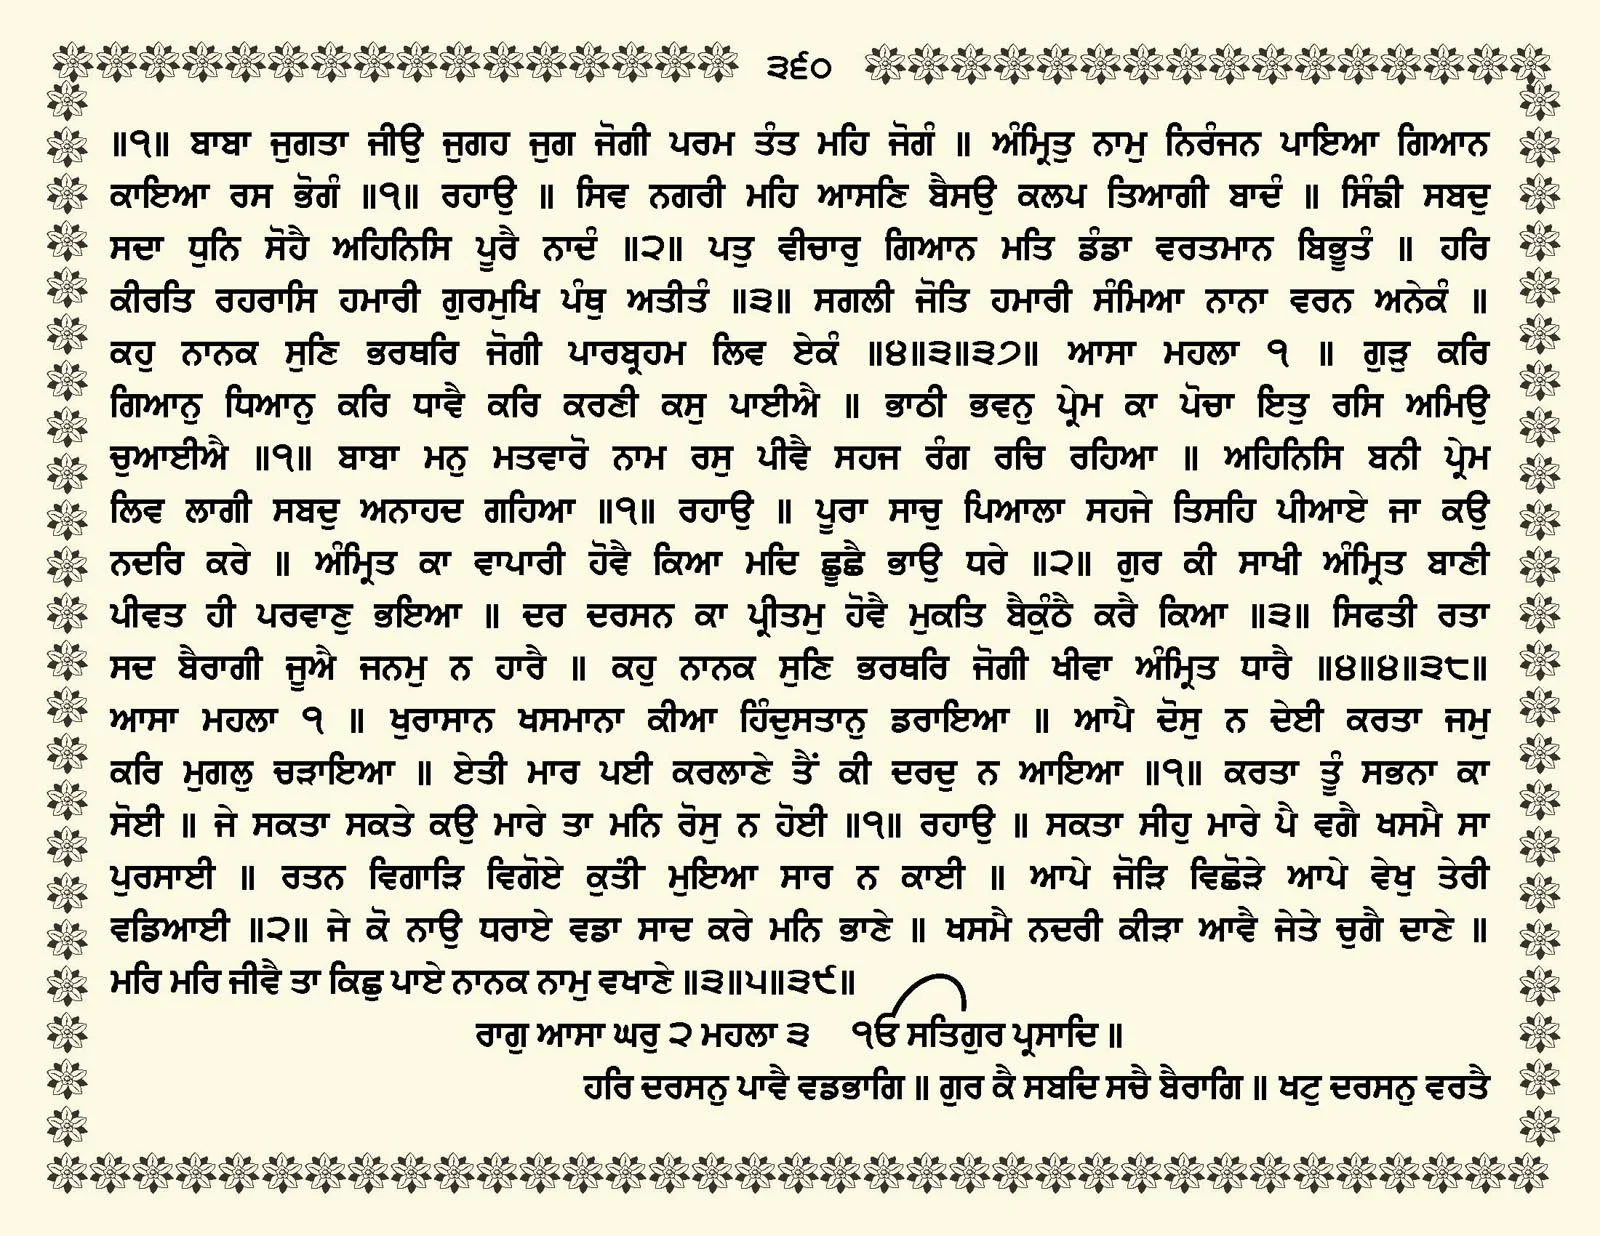 ੩੬੦
॥੧॥ ਬਾਬਾ ਜੁਗਤਾ ਜੀਉ ਜੁਗਹ ਜੁਗ ਜੋਗੀ ਪਰਮ ਤੰਤ ਮਹਿ ਜੋਗੰ ॥ ਅੰਮ੍ਰਿਤੁ ਨਾਮੁ ਨਿਰੰਜਨ ਪਾਇਆ ਗਿਆਨ
ਕਾਇਆ ਰਸ ਭੋਗੰ ॥੧॥ ਰਹਾਉ ॥ ਸਿਵ ਨਗਰੀ ਮਹਿ ਆਸਣਿ ਬੈਸਉ ਕਲਪ ਤਿਆਗੀ ਬਾਦੰ ॥ ਸਿੰਙੀ ਸਬਦੁ
ਸਦਾ ਧੁਨਿ ਸੋਹੈ ਅਹਿਨਿਸਿ ਪੂਰੈ ਨਾਦੰ ॥੨॥ ਪਤੁ ਵੀਚਾਰੁ ਗਿਆਨ ਮਤਿ ਡੰਡਾ ਵਰਤਮਾਨ ਬਿਭੂਤੰ ॥ ਹਰਿ
ਕੀਰਤਿ ਰਹਰਾਸਿ ਹਮਾਰੀ ਗੁਰਮੁਖਿ ਪੰਥੁ ਅਤੀਤੰ ॥੩॥ ਸਗਲੀ ਜੋਤਿ ਹਮਾਰੀ ਸੰਮਿਆ ਨਾਨਾ ਵਰਨ ਅਨੇਕੰ ॥
ਕਹੁ ਨਾਨਕ ਸੁਣਿ ਭਰਥਰਿ ਜੋਗੀ ਪਾਰਬ੍ਰਹਮ ਲਿਵ ਏਕੰ ॥੪॥੩॥੩੭॥ ਆਸਾ ਮਹਲਾ ੧ ॥ ਗੁੜੁ ਕਰਿ
ਗਿਆਨੁ ਧਿਆਨੁ ਕਰਿ ਧਾਵੈ ਕਰਿ ਕਰਣੀ ਕਸੁ ਪਾਈਐ ॥ ਭਾਠੀ ਭਵਨੁ ਪ੍ਰੇਮ ਕਾ ਪੋਚਾ ਇਤੁ ਰਸਿ ਅਮਿਉ
ਚੁਆਈਐ ॥੧॥ ਬਾਬਾ ਮਨੁ ਮਤਵਾਰੋ ਨਾਮ ਰਸੁ ਪੀਵੈ ਸਹਜ ਰੰਗ ਰਚਿ ਰਹਿਆ ॥ ਅਹਿਨਿਸਿ ਬਨੀ ਪ੍ਰੇਮ
ਲਿਵ ਲਾਗੀ ਸਬਦੁ ਅਨਾਹਦ ਗਹਿਆ ॥੧॥ ਰਹਾਉ ॥ ਪੂਰਾ ਸਾਚੁ ਪਿਆਲਾ ਸਹਜੇ ਤਿਸਹਿ ਪੀਆਏ ਜਾ ਕਉ
ਨਦਰਿ ਕਰੇ ॥ ਅੰਮ੍ਰਿਤ ਕਾ ਵਾਪਾਰੀ ਹੋਵੈ ਕਿਆ ਮਦਿ ਛੂਛੈ ਭਾਉ ਧਰੇ ॥੨॥ ਗੁਰ ਕੀ ਸਾਖੀ ਅੰਮ੍ਰਿਤ ਬਾਣੀ
ਪੀਵਤ ਹੀ ਪਰਵਾਣੁ ਭਇਆ ॥ ਦਰ ਦਰਸਨ ਕਾ ਪ੍ਰੀਤਮੁ ਹੋਵੈ ਮੁਕਤਿ ਬੈਕੁੰਠੈ ਕਰੈ ਕਿਆ ॥੩॥ ਸਿਫਤੀ ਰਤਾ
ਸਦ ਬੈਰਾਗੀ ਜੂਐ ਜਨਮੁ ਨ ਹਾਰੈ ॥ ਕਹੁ ਨਾਨਕ ਸੁਣਿ ਭਰਥਰਿ ਜੋਗੀ ਖੀਵਾ ਅੰਮ੍ਰਿਤ ਧਾਰੈ ॥੪॥੪॥੩੮॥
ਆਸਾ ਮਹਲਾ ੧ ॥ ਖੁਰਾਸਾਨ ਖਸਮਾਨਾ ਕੀਆ ਹਿੰਦੁਸਤਾਨੁ ਡਰਾਇਆ ॥ ਆਪੈ ਦੋਸੁ ਨ ਦੇਈ ਕਰਤਾ ਜਮੁ
ਕਰਿ ਮੁਗਲੁ ਚੜਾਇਆ ॥ ਏਤੀ ਮਾਰ ਪਈ ਕਰਲਾਣੇ ਤੈਂ ਕੀ ਦਰਦੁ ਨ ਆਇਆ ॥੧॥ ਕਰਤਾ ਤੂੰ ਸਭਨਾ ਕਾ
ਸੋਈ ॥ ਜੇ ਸਕਤਾ ਸਕਤੇ ਕਉ ਮਾਰੇ ਤਾ ਮਨਿ ਰੋਸੁ ਨ ਹੋਈ ॥੧॥ ਰਹਾਉ ॥ ਸਕਤਾ ਸੀਹੁ ਮਾਰੇ ਪੈ ਵਗੈ ਖਸਮੈ ਸਾ
ਪੁਰਸਾਈ ॥ ਰਤਨ ਵਿਗਾੜਿ ਵਿਗੋਏ ਕੁਤੰੀ ਮੁਇਆ ਸਾਰ ਨ ਕਾਈ ॥ ਆਪੇ ਜੋੜਿ ਵਿਛੋੜੇ ਆਪੇ ਵੇਖੁ ਤੇਰੀ
ਵਡਿਆਈ ॥੨॥ ਜੇ ਕੋ ਨਾਉ ਧਰਾਏ ਵਡਾ ਸਾਦ ਕਰੇ ਮਨਿ ਭਾਣੇ ॥ ਖਸਮੈ ਨਦਰੀ ਕੀੜਾ ਆਵੈ ਜੇਤੇ ਚੁਗੈ ਦਾਣੇ ॥
ਮਰਿ ਮਰਿ ਜੀਵੈ ਤਾ ਕਿਛੁ ਪਾਏ ਨਾਨਕ ਨਾਮੁ ਵਖਾਣੇ ॥੩॥੫॥੩੯॥
ਰਾਗੁ ਆਸਾ ਘਰੁ ੨ ਮਹਲਾ ੩ ੴ ਸਤਿਗੁਰ ਪ੍ਰਸਾਦਿ ॥
ਹਰਿ ਦਰਸਨੁ ਪਾਵੈ ਵਡਭਾਗਿ ॥ ਗੁਰ ਕੈ ਸਬਦਿ ਸਚੈ ਬੈਰਾਗਿ ॥ ਖਟੁ ਦਰਸਨੁ ਵਰਤੈ